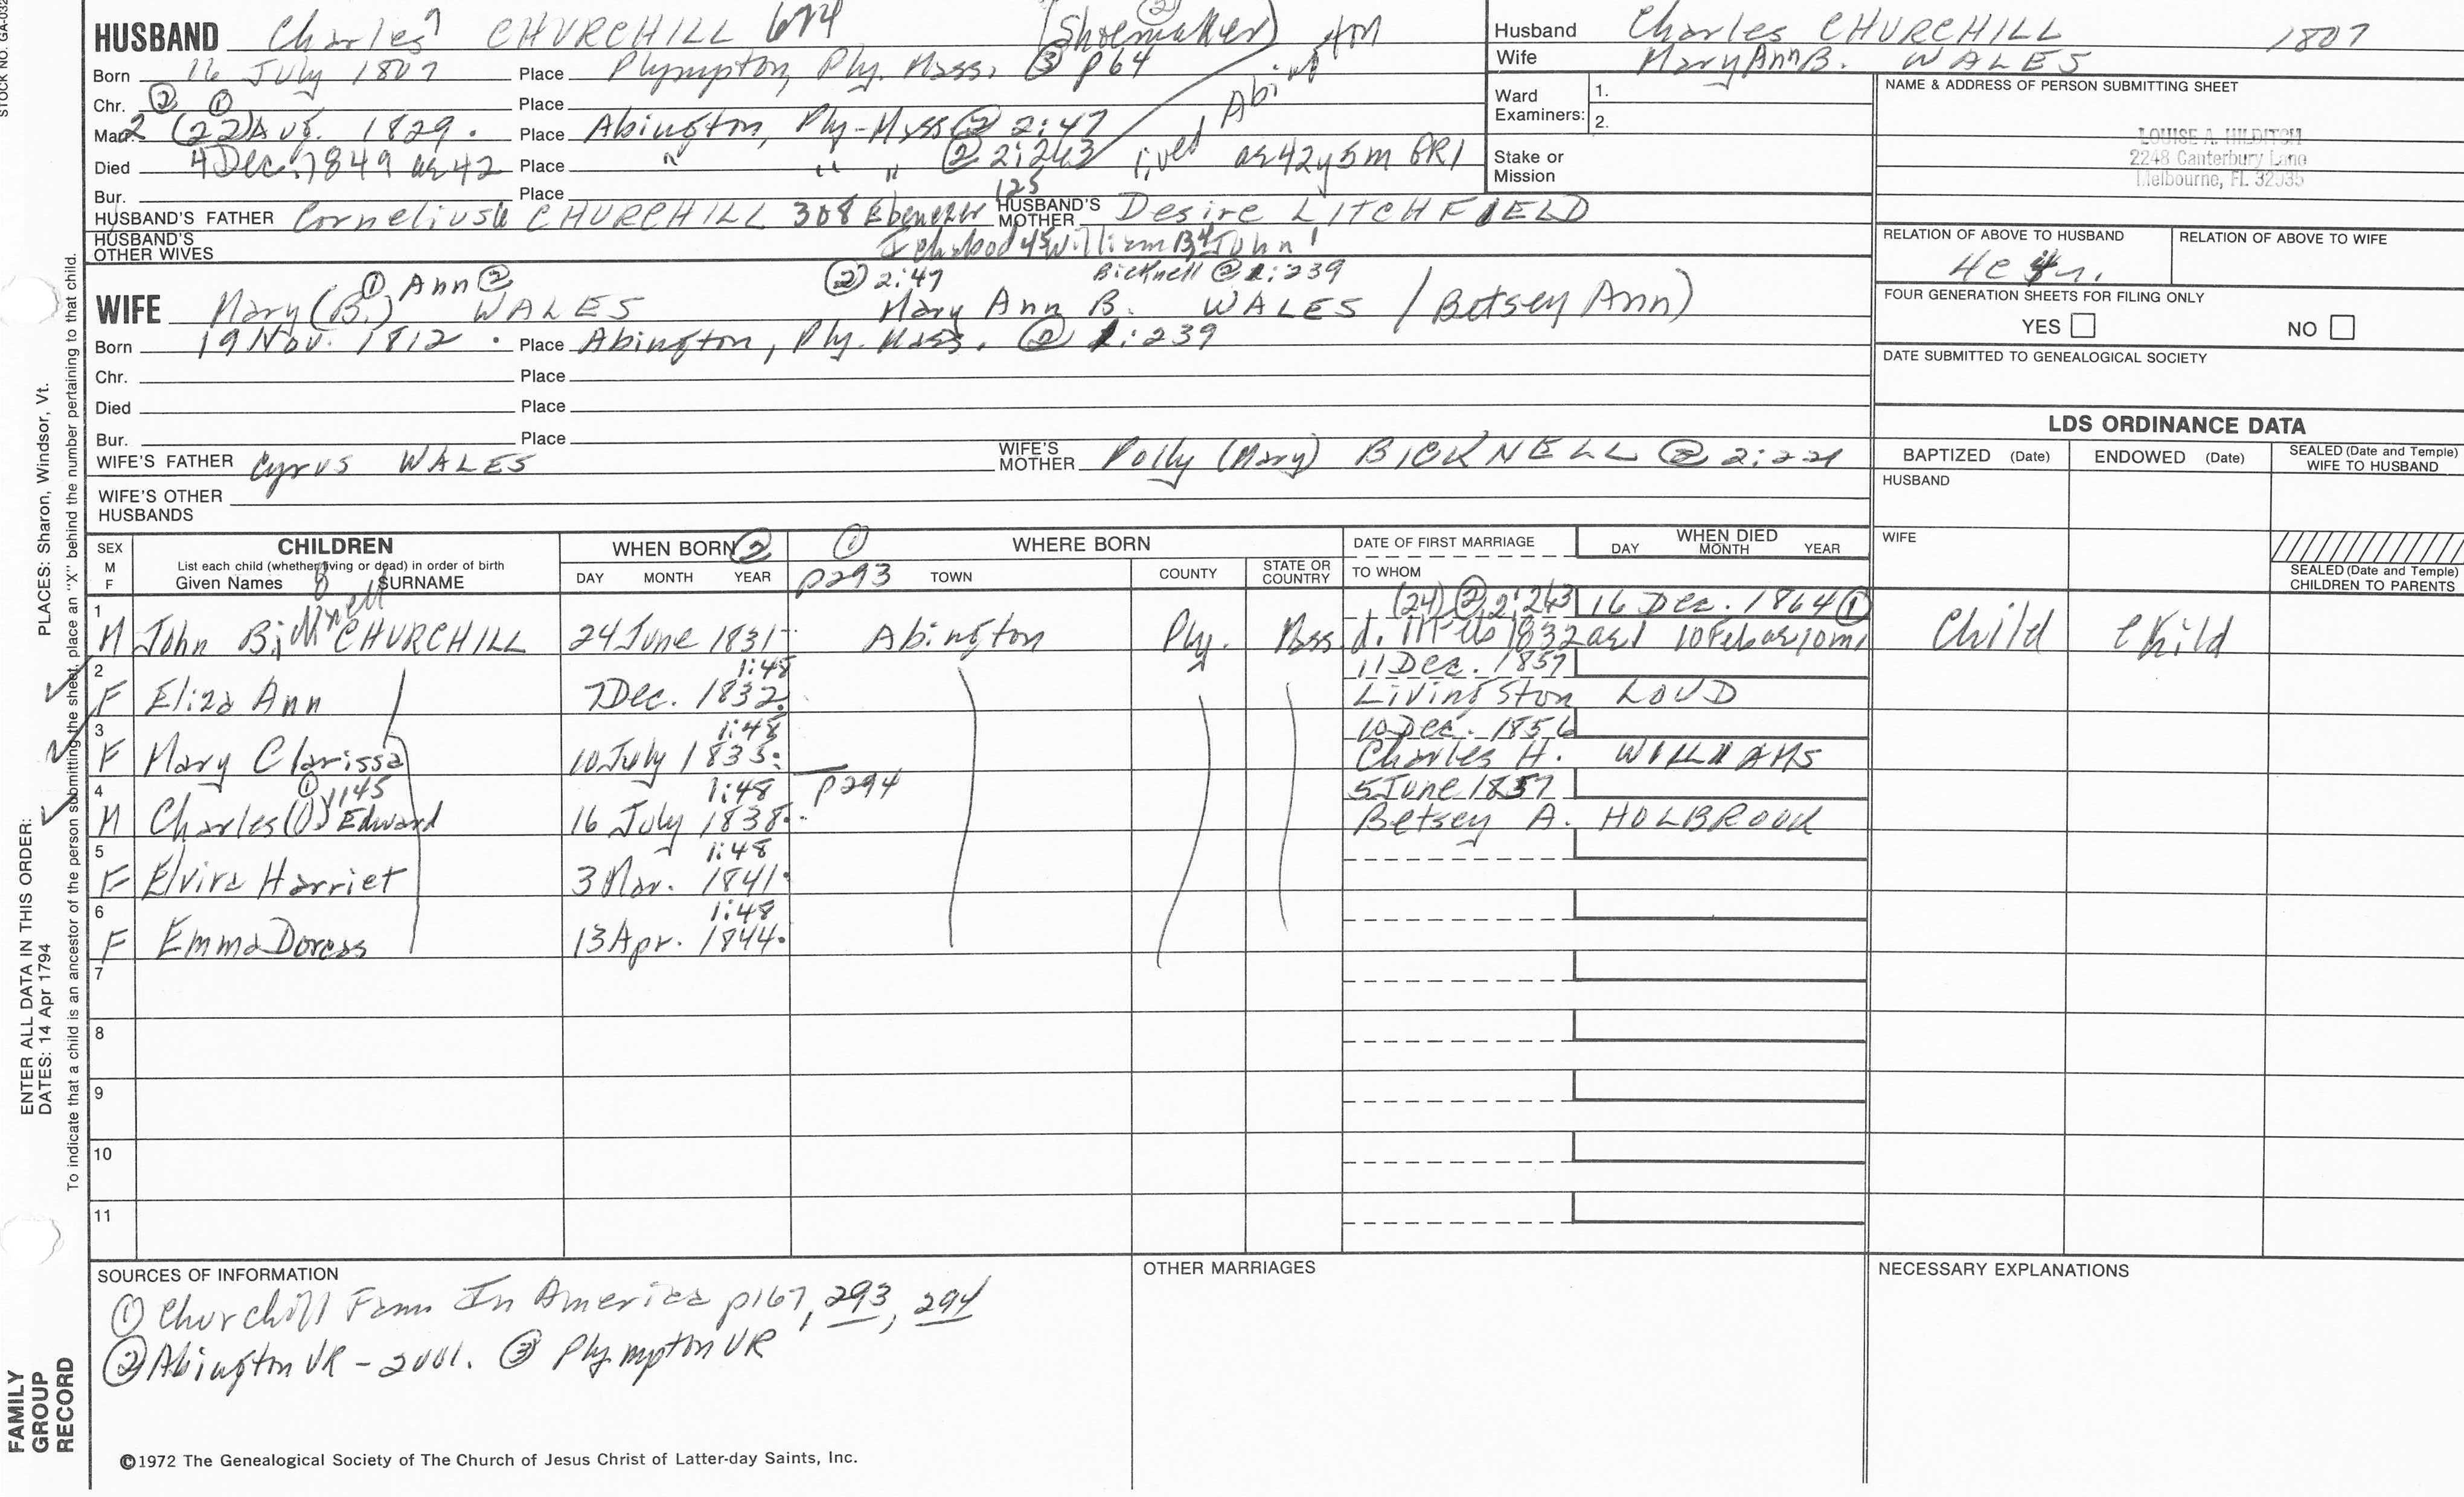 STOCK NO. GA-032
HUSBAND Charles7 CHURCHILL 674 (Shoemaker) ②
Born 16 July 1807 Place Plympton, Ply. Mass. ③ p64
Chr. ② ① Place
Mar. 2 (22) Aug. 1829. Place Abington, Ply-Mass ② 2:47
Died 4 Dec. 1849 ae 42 Place " " " ② 2:263 lived Abington ae 42y5m GR1
Bur. Place
HUSBAND'S FATHER Cornelius6 CHURCHILL 308 Ebenezer 125 HUSBAND'S MOTHER Desire LITCHFIELD
HUSBAND'S OTHER WIVES Ichabod4 William John1
Husband Charles CHURCHILL 1807
Wife Mary Ann B. WALES
Ward Examiners: 1.
2.
Stake or Mission
NAME & ADDRESS OF PERSON SUBMITTING SHEET
LOUISE A. HILDITCH
2248 Canterbury Lane
Melbourne, Fl. 32935
RELATION OF ABOVE TO HUSBAND RELATION OF ABOVE TO WIFE
FOUR GENERATION SHEETS FOR FILING ONLY
YES NO
DATE SUBMITTED TO GENEALOGICAL SOCIETY
① Ann ② ② 2:47 Bicknell @ 1:239
WIFE Mary (B.) WALES Mary Ann B. WALES / Betsey Ann)
Born 19 Nov. 1812 . Place Abington, Ply. Mass. ② 1:239
Chr. Place
Died Place
Bur. Place
WIFE'S FATHER Cyrus WALES WIFE'S MOTHER Polly (Mary) BICKNELL ② 2:221
WIFE'S OTHER HUSBANDS
LDS ORDINANCE DATA
BAPTIZED (Date) ENDOWED (Date) SEALED (Date and Temple) WIFE TO HUSBAND
HUSBAND
WIFE
SEALED (Date and Temple) CHILDREN TO PARENTS
SEX M F CHILDREN WHEN BORN ② ① WHERE BORN DATE OF FIRST MARRIAGE WHEN DIED
List each child (whether living or dead) in order of birth
Given Names 8 SURNAME DAY MONTH YEAR p293 TOWN COUNTY STATE OR COUNTRY TO WHOM DAY MONTH YEAR
(24) ② 2:263 16 Dec. 1864 ①
1 M John Bicknell CHURCHILL 24 June 1831 Abington Ply. Mss. 1832 ae 1 10 Feb ae 10m Child Child
1:48 11 Dec. 1857
2 F Eliza Ann 7 Dec. 1832. Livingston LOUD
1:48 10 Dec. 1856
3 F Mary Clarissa 10 July 1835. Charles H. WILLIAMS
① 1145 1:48 p294 5 June 1857
4 M Charles ( ) Edward 16 July 1838. Betsey A. HOLBROOK
1:48
5 F Elvira Harriet 3 Mar. 1841.
1:48
6 F Emma Dorcas 13 Apr. 1844.
7
8
9
10
11
SOURCES OF INFORMATION
① Churchill Fam In America p167, 293, 294
② Abington VR - 2vol. ③ Plympton VR
OTHER MARRIAGES
NECESSARY EXPLANATIONS
©1972 The Genealogical Society of The Church of Jesus Christ of Latter-day Saints, Inc.
FAMILY GROUP RECORD
ENTER ALL DATA IN THIS ORDER:
DATES: 14 Apr 1794
PLACES: Sharon, Windsor, Vt.
To indicate that a child is an ancestor of the person submitting the sheet, place an "X" behind the number pertaining to that child.